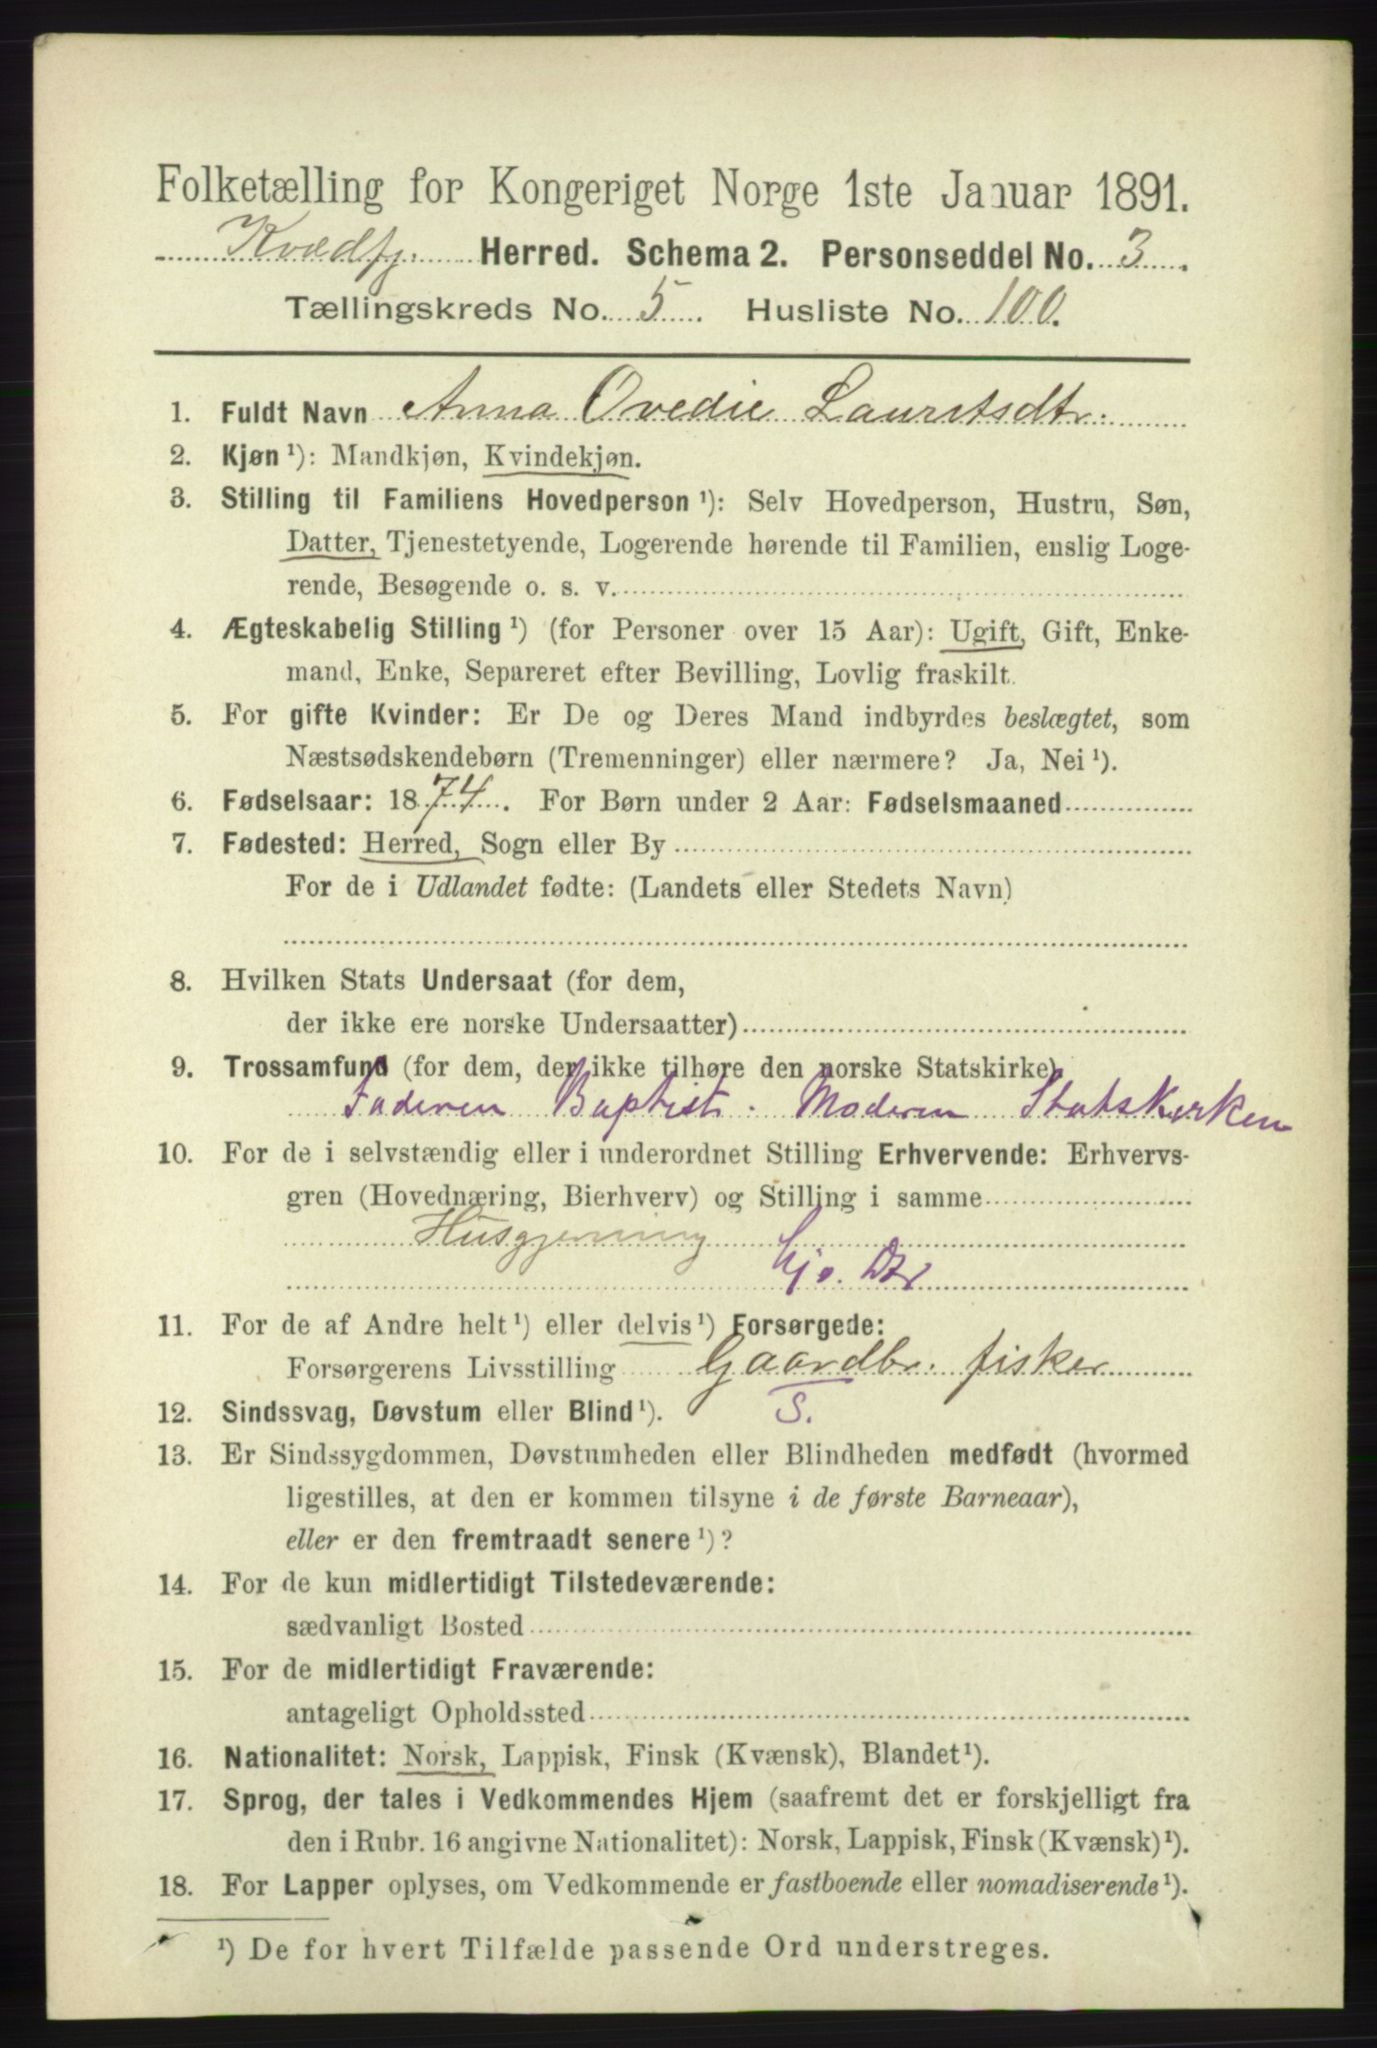 Folketælling for Kongeriget Norge 1ste Januar 1891.
Kvædfj. Herred. Schema 2. Personseddel No. 3.
Tællingskreds No. 5. Husliste No. 100.
1. Fuldt Navn Anna Ovedie Lauritsdtr.
2. Kjøn ¹): Mandkjøn, Kvindekjøn.
3. Stilling til Familiens Hovedperson ¹): Selv Hovedperson, Hustru, Søn,
Datter, Tjenestetyende, Logerende hørende til Familien, enslig Loge-
rende, Besøgende o. s. v.
4. Ægteskabelig Stilling ¹) (for Personer over 15 Aar): Ugift, Gift, Enke-
mand, Enke, Separeret efter Bevilling, Lovlig fraskilt.
5. For gifte Kvinder: Er De og Deres Mand indbyrdes beslægtet, som
Næstsødskendebørn (Tremenninger) eller nærmere? Ja, Nei ¹).
6. Fødselsaar: 1874. For Børn under 2 Aar: Fødselsmaaned
7. Fødested: Herred, Sogn eller By
For de i Udlandet fødte: (Landets eller Stedets Navn)
8. Hvilken Stats Undersaat (for dem,
der ikke ere norske Undersaatter)
9. Trossamfund (for dem, der ikke tilhøre den norske Statskirke)
Faderen Baptist. Moderen Statskirken
10. For de i selvstændig eller i underordnet Stilling Erhvervende: Erhvervs-
gren (Hovednæring, Bierhverv) og Stilling i samme
Husgjerning
Dtr
11. For de af Andre helt ¹) eller delvis ¹) Forsørgede:
Forsørgerens Livsstilling Gaardbr. fisker
12. Sindssvag, Døvstum eller Blind ¹). S.
13. Er Sindssygdommen, Døvstumheden eller Blindheden medfødt (hvormed
ligestilles, at den er kommen tilsyne i de første Barneaar),
eller er den fremtraadt senere ¹)?
14. For de kun midlertidigt Tilstedeværende:
sædvanligt Bosted
15. For de midlertidigt Fraværende:
antageligt Opholdssted
16. Nationalitet: Norsk, Lappisk, Finsk (Kvænsk), Blandet ¹).
17. Sprog, der tales i Vedkommendes Hjem (saafremt det er forskjelligt fra
den i Rubr. 16 angivne Nationalitet): Norsk, Lappisk, Finsk (Kvænsk) ¹).
18. For Lapper oplyses, om Vedkommende er fastboende eller nomadiserende ¹).
¹) De for hvert Tilfælde passende Ord understreges.